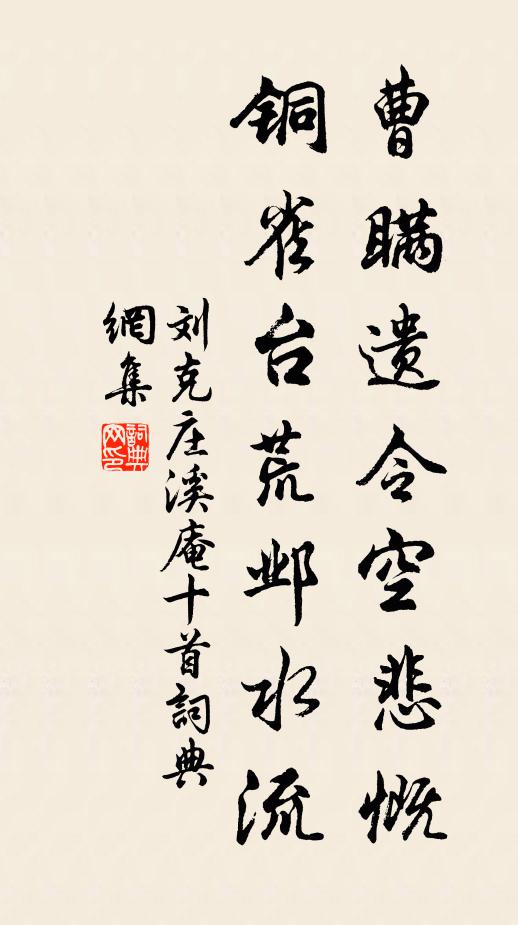 曹瞒遗令空悲慨
铜雀台荒邺水流
刘克庄溪庵十首詞典
網集
詞典
网印